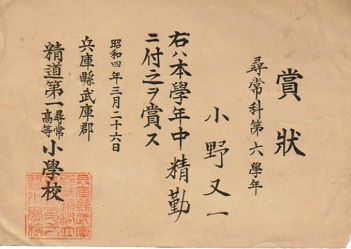 賞狀
尋常科第六學年
小野又一
右ハ本學年中精勤
ニ付之ヲ賞ス
昭和四年三月二十六日
兵庫縣武庫郡
精道第一尋常高等小學校